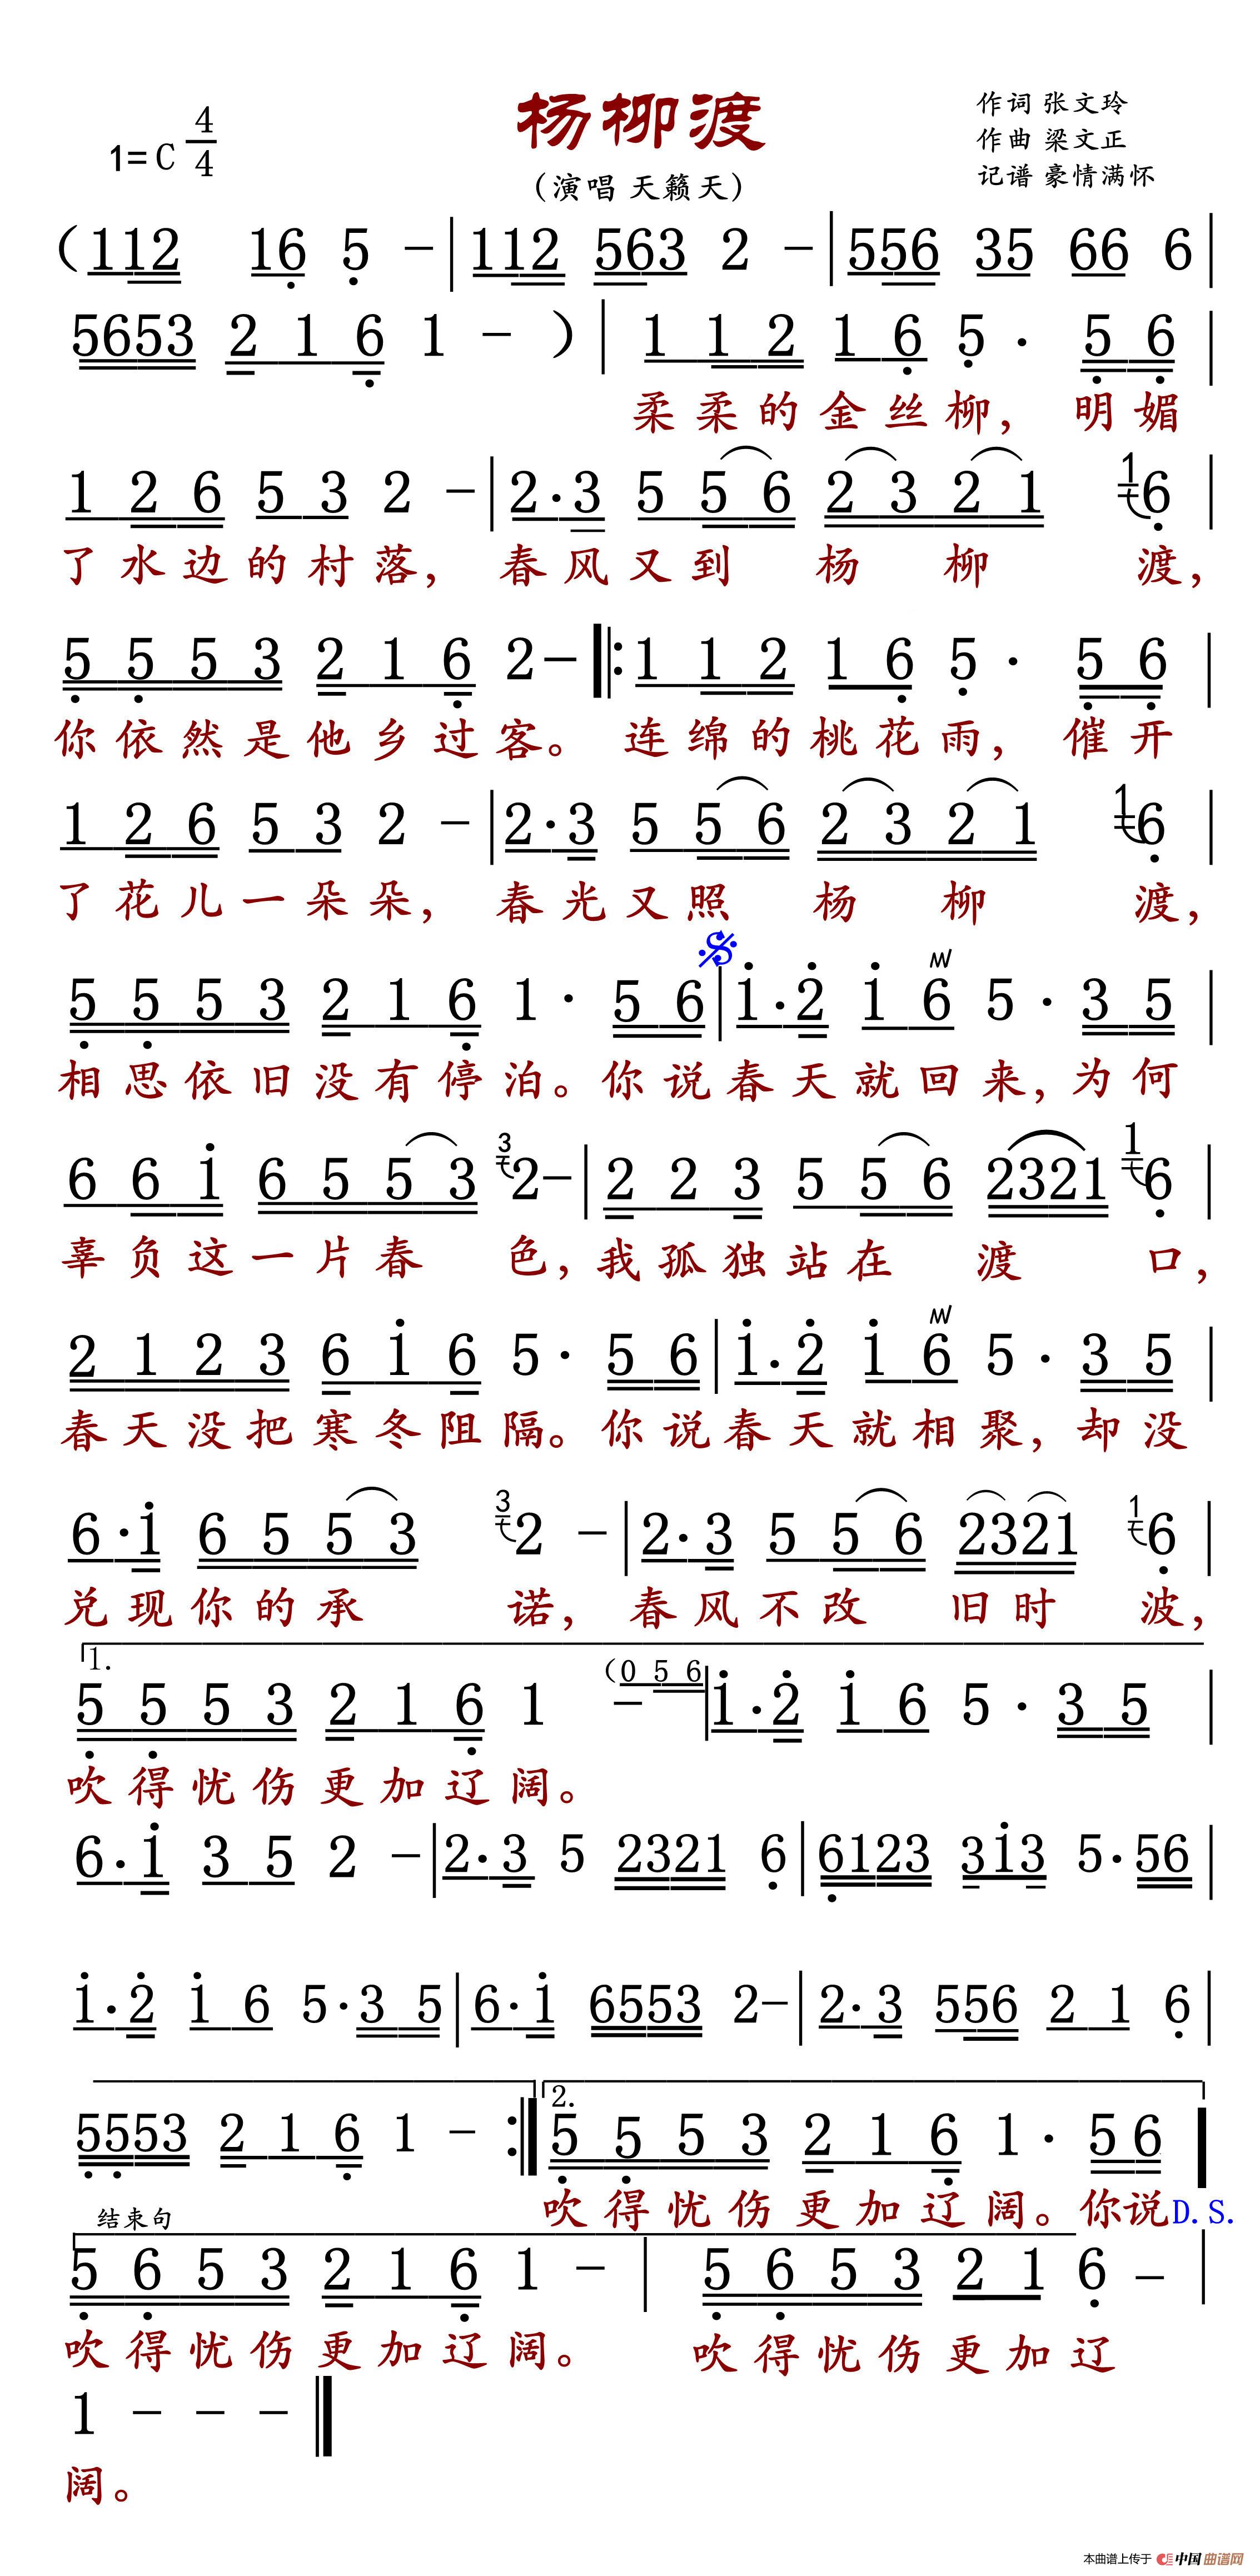 杨柳渡
作词 张文玲
1=C 4/4
作曲 梁文正
(演唱 天籁天)
记谱 豪情满怀
(112 16 5 - | 112 563 2 - | 556 35 66 6 |
5653 2 1 6 1 - ) | 1 1 2 1 6 5 · 5 6 |
柔柔的金丝柳, 明媚
1 2 6 5 3 2 - | 2·3 5 5 6 2 3 2 1 1 6 |
了水边的村落, 春风又到 杨 柳 渡,
5 5 5 3 2 1 6 2 - |: 1 1 2 1 6 5 · 5 6 |
你依然是他乡过客。 连绵的桃花雨, 催开
1 2 6 5 3 2 - | 2·3 5 5 6 2 3 2 1 1 6 |
了花儿一朵朵, 春光又照 杨 柳 渡,
5 5 5 3 2 1 6 1 · 5 6 | 1·2 1 6 5 · 3 5 |
相思依旧没有停泊。你说春天就回来, 为何
6 6 1 6 5 5 3 3 2 - | 2 2 3 5 5 6 2321 1 6 |
辜负这一片春 色, 我孤独站在 渡 口,
2 1 2 3 6 1 6 5 · 5 6 | 1·2 1 6 5 · 3 5 |
春天没把寒冬阻隔。你说春天就相聚, 却没
6·1 6 5 5 3 3 2 - | 2·3 5 5 6 2321 1 6 |
兑现你的承 诺, 春风不改 旧时 波,
1.
5 5 5 3 2 1 6 1 - (0 5 6 | 1·2 1 6 5 · 3 5 |
吹得忧伤更加辽阔。
6·1 3 5 2 - | 2·3 5 2321 6 | 6123 313 5·56 |
1·2 1 6 5·3 5 | 6·1 6553 2- | 2·3 556 2 1 6 |
5553 2 1 6 1 - :| 2. 5 5 5 3 2 1 6 1 · 5 6 |
吹得忧伤更加辽阔。你说D.S.
结束句
5 6 5 3 2 1 6 1 - | 5 6 5 3 2 1 6 - |
吹得忧伤更加辽阔。 吹得忧伤更加辽
1 - - - ‖
阔。
本曲谱上传于 中国曲谱网